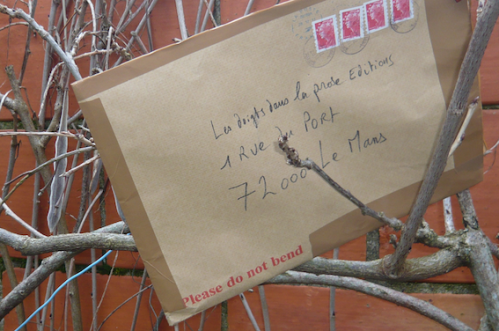 Les doigts dans la prose Editions
1 Rue du Port
72000 Le Mans
Please do not bend